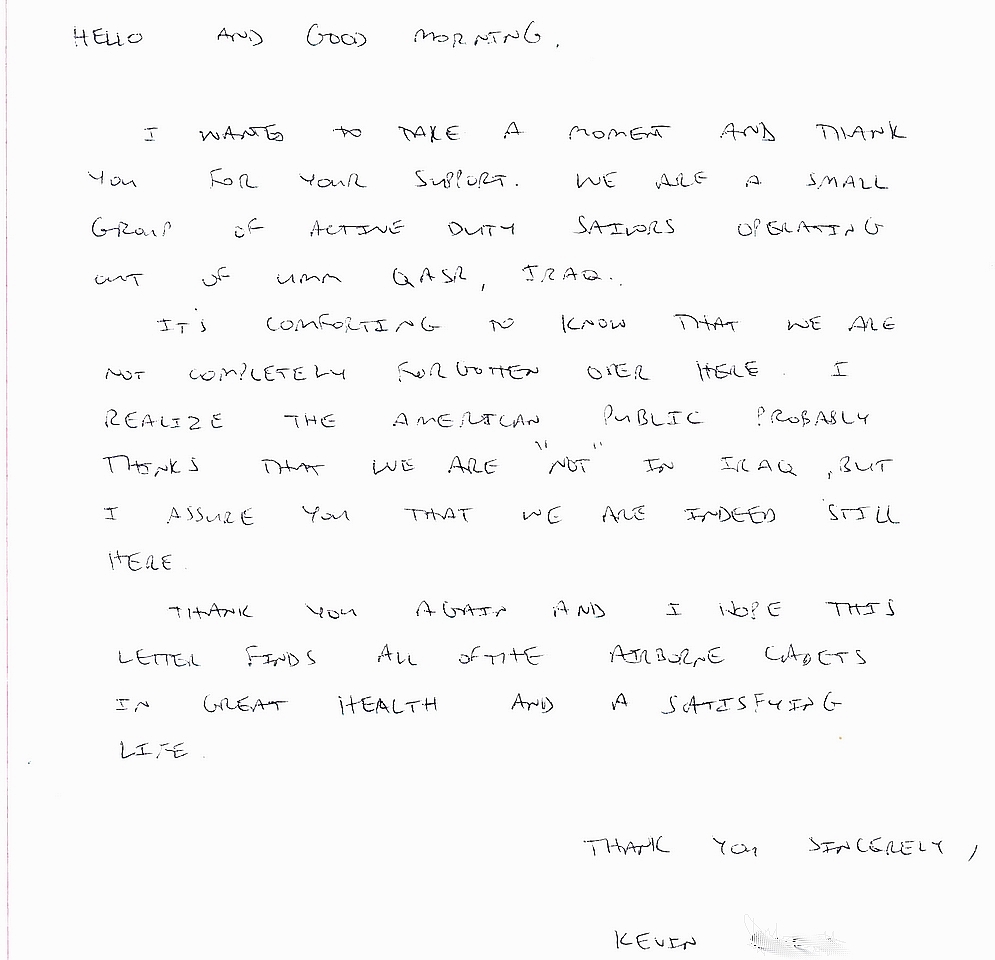 HELLO AND GOOD MORNING,
I WANTED TO TAKE A MOMENT AND THANK
YOU FOR YOUR SUPPORT. WE ARE A SMALL
GROUP OF ACTIVE DUTY SAILORS OPERATING
OUT OF UMM QASR, IRAQ.
IT'S COMFORTING TO KNOW THAT WE ARE
NOT COMPLETELY FORGOTTEN OVER HERE. I
REALIZE THE AMERICAN PUBLIC PROBABLY
THINKS THAT WE ARE "NOT" IN IRAQ, BUT
I ASSURE YOU THAT WE ARE INDEED STILL
HERE.
THANK YOU AGAIN AND I HOPE THIS
LETTER FINDS ALL OF THE AIRBORNE CADETS
IN GREAT HEALTH AND A SATISFYING
LIFE.
THANK YOU SINCERELY,
KEVIN